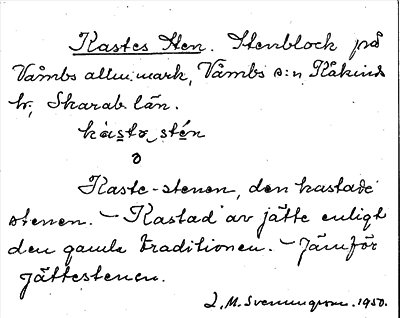 Kastes Sten. Stenblock på
Våmbs allm. mark, Våmbs s:n Kåkinds
hr, Skarab. län.
kas̲tə stén
o
Kaste-stenen, den kastade
stenen. – Kastad av jätte enligt
den gamla traditionen. – Jämför
Jättestenen.
L. M. Svenungsson. 1950.